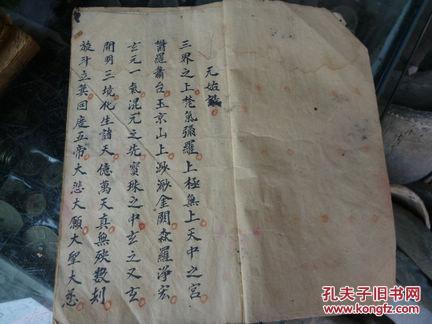 元始誥
三界之上梵氣彌羅上極無上天中之宮
欝羅蕭台玉京山上渺渺金闕森羅淨宏
玄元一氣混元之先寶珠之中玄之又玄
開明三境化生諸天億萬天真無殃數刹
旋斗立箕回座五帝大悲大願大聖大慈
孔夫子旧书网